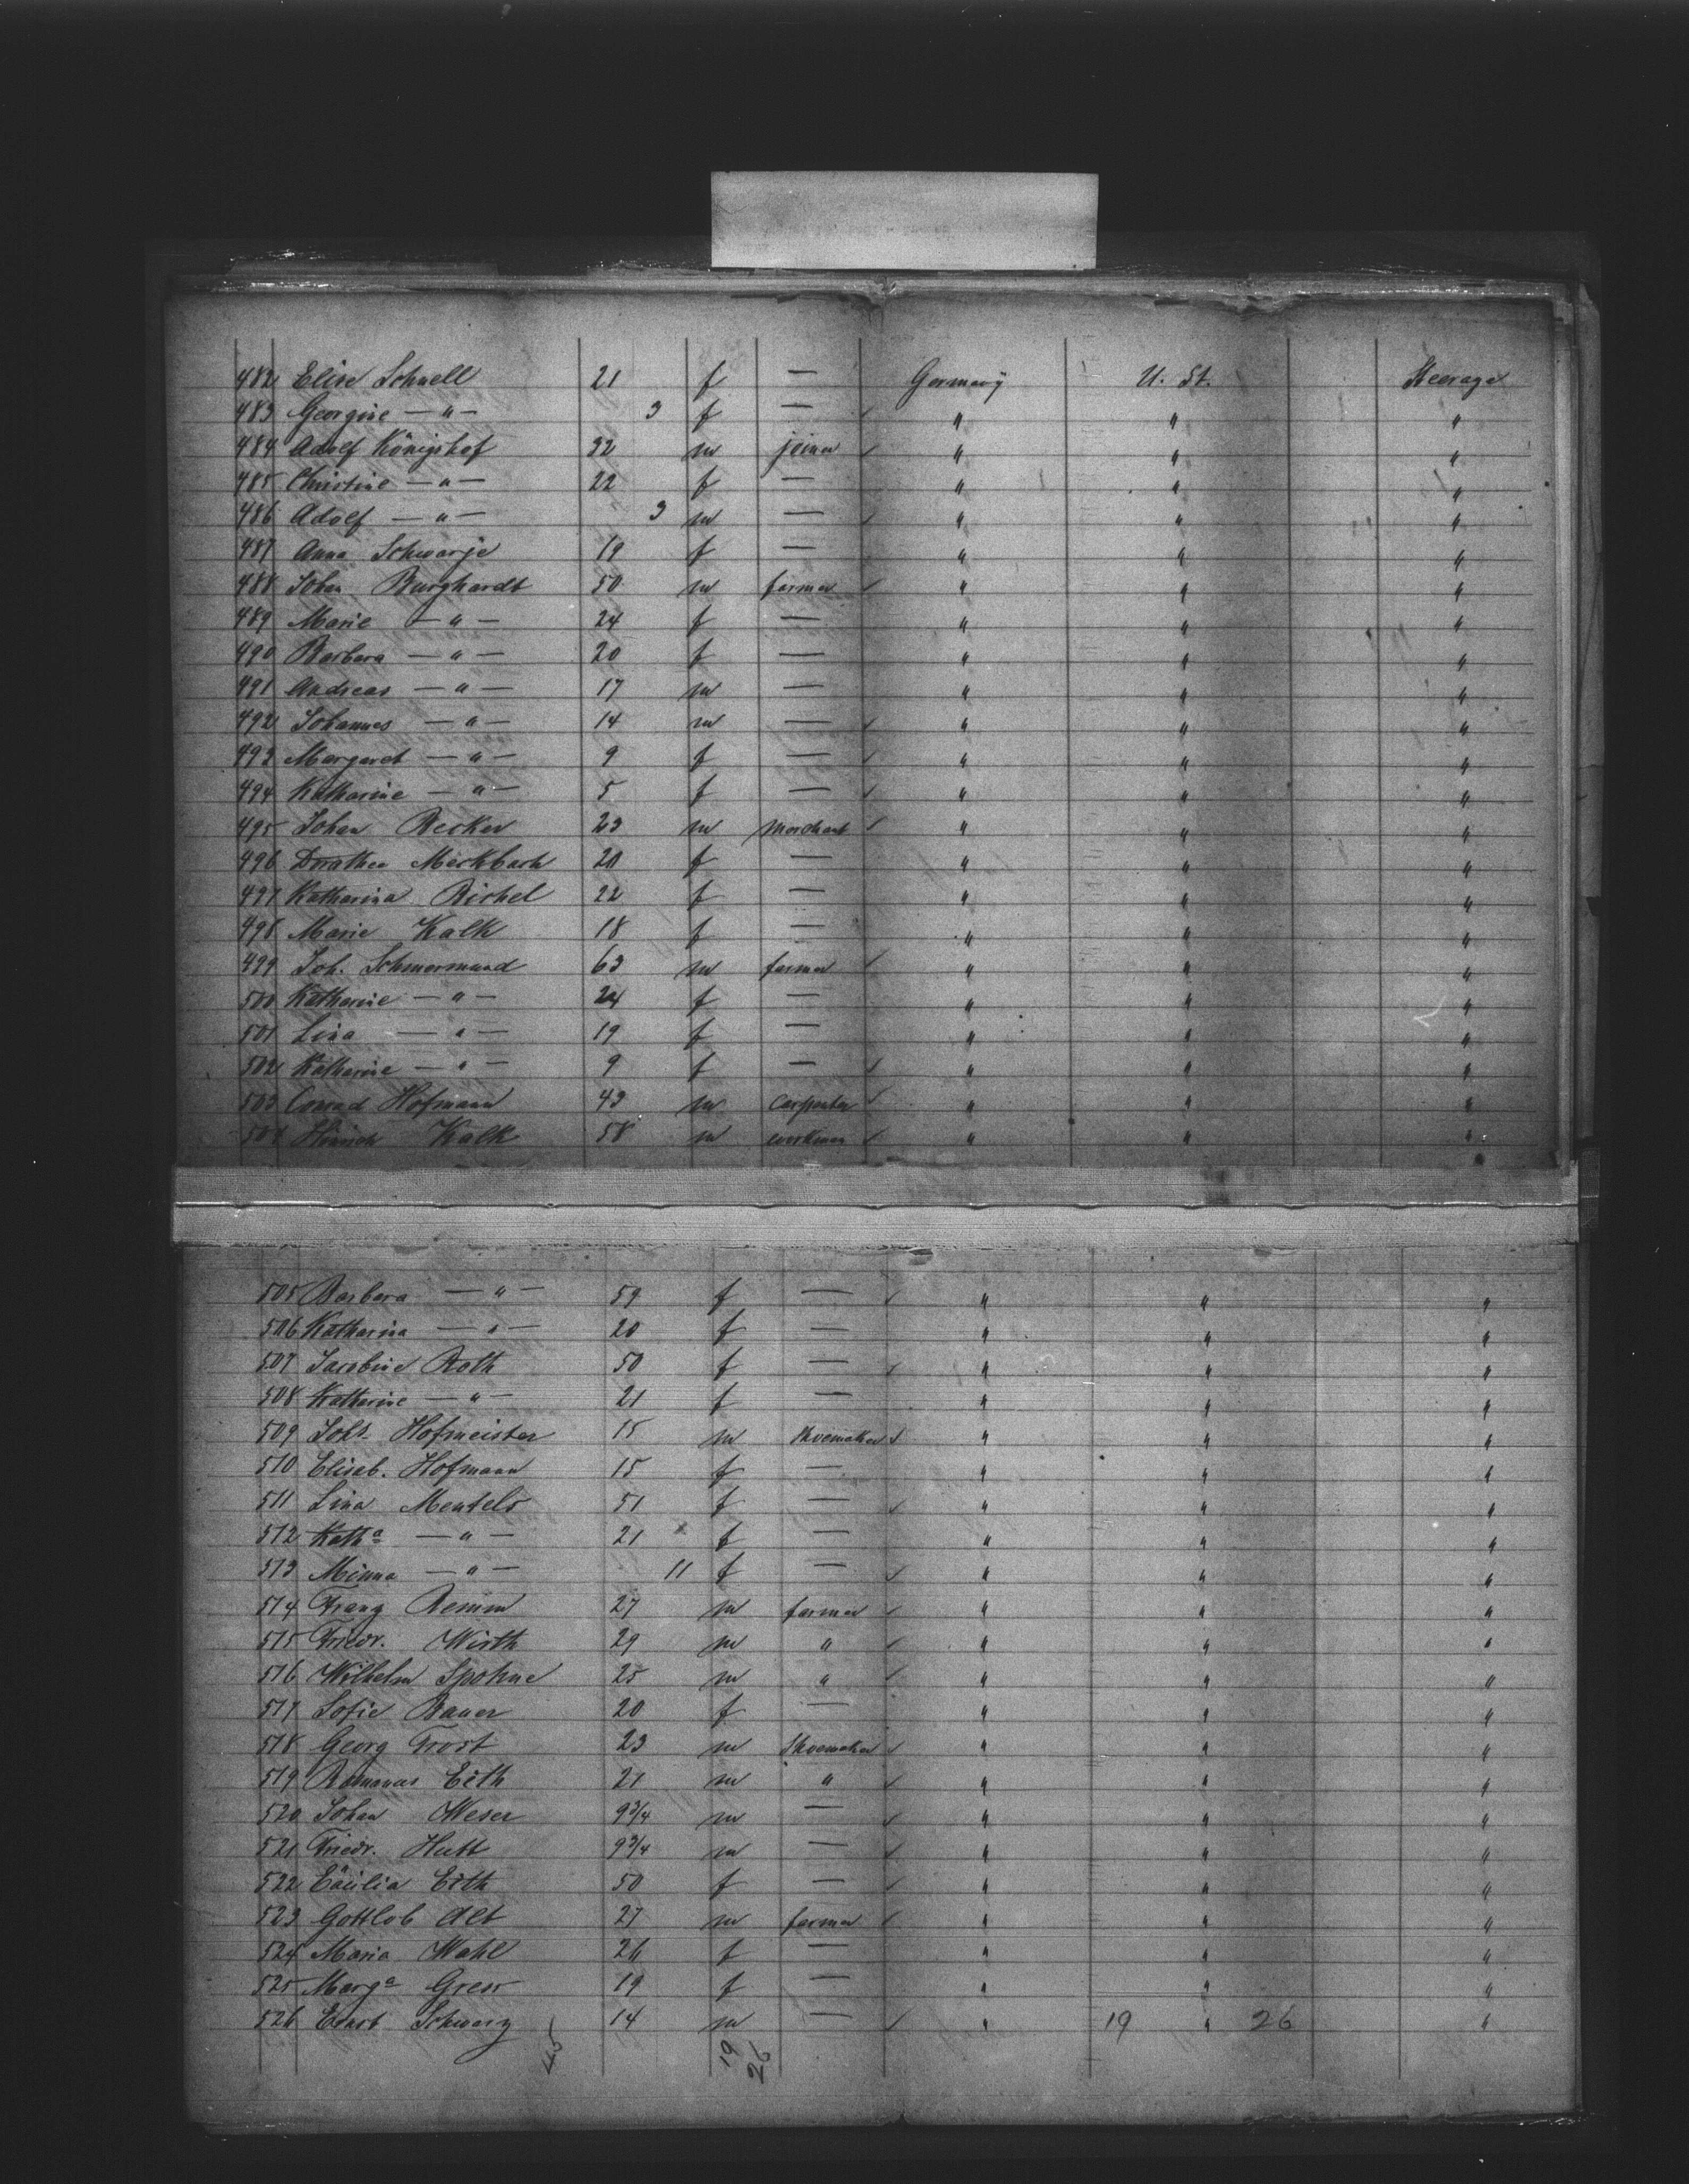 482 Elise Schnell 21 f — Germany U. St. Steerage
483 Georgine — " — 3 f — " " "
484 Adolf Königshof 32 m joiner " " "
485 Christine — " — 22 f — " " "
486 Adolf — " — 3 m — " " "
487 Anna Schwarze 19 f — " " "
488 Johan Burghardt 50 m farmer " " "
489 Marie — " — 24 f — " " "
490 Barbara — " — 20 f — " " "
491 Andreas — " — 17 m — " " "
492 Johannes — " — 14 m — " " "
493 Margaret — " — 9 f — " " "
494 Katharine — " — 5 f — " " "
495 Johan Becker 23 m merchant " " "
496 Dorathea Meckbach 20 f — " " "
497 Katharina Bichel 22 f — " " "
498 Marie Kalk 18 f — " " "
499 Joh. Schmermund 63 m farmer " " "
500 Katharine — " — 24 f — " " "
501 Lina — " — 19 f — " " "
502 Katharine — " — 9 f — " " "
503 Conrad Hofmann 43 m carpenter " " "
504 Hinrich Kalk 58 m workman " " "
505 Barbara — " — 59 f — " " "
506 Katharina — " — 20 f — " " "
507 Jacobine Roth 50 f — " " "
508 Katharine — " — 21 f — " " "
509 Johs. Hofmeister 15 m shoemaker " " "
510 Elisab. Hofmann 15 f — " " "
511 Lina Mentels 51 f — " " "
512 Katha — " — 21 f — " " "
513 Minna — " — 11 f — " " "
514 Franz Remim 27 m farmer " " "
515 Friedr. Wirth 29 m " " " "
516 Wilhelm Spohne 25 m " " " "
517 Sofie Bauer 20 f — " " "
518 Georg Trost 23 m Shoemaker " " "
519 Romanus Eith 21 m " " " "
520 Johan Weser 9 3/4 m — " " "
521 Friedr. Hutt 9 3/4 m — " " "
522 Cäcilia Eith 50 f — " " "
523 Gottlob Alt 27 m farmer " " "
524 Maria Wahl 26 f — " " "
525 Marga Gress 19 f — " " "
526 Ernst Schwarz 14 m — " 19 " 26 "
45 19 26